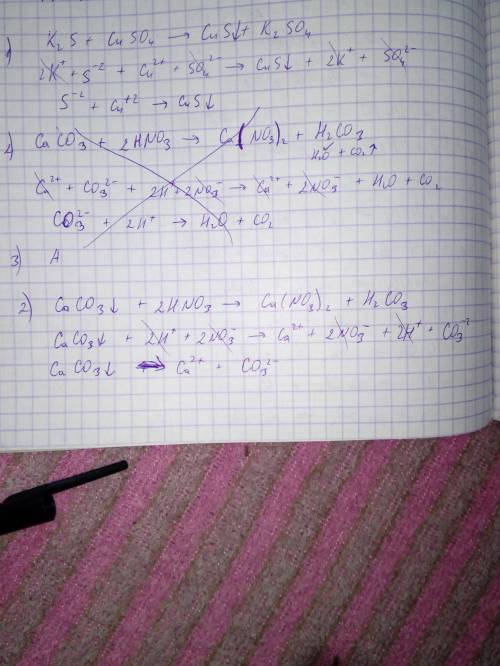 1) K₂S + CuSO₄ → CuS↓ + K₂SO₄
2K⁺ + S⁻² + Cu²⁺ + SO₄²⁻ → CuS↓ + 2K⁺ + SO₄²⁻
S⁻² + Cu⁺² → CuS↓
2) CaCO₃ + 2HNO₃ → Ca(NO₃)₂ + H₂CO₃
H₂O + CO₂↑
Ca²⁺ + CO₃²⁻ + 2H⁺ + 2NO₃⁻ → Ca²⁺ + 2NO₃⁻ + H₂O + CO₂
CO₃²⁻ + 2H⁺ → H₂O + CO₂
3) A
2) CaCO₃↓ + 2HNO₃ → Ca(NO₃)₂ + H₂CO₃
CaCO₃↓ + 2H⁺ + 2NO₃⁻ → Ca²⁺ + 2NO₃⁻ + 2H⁺ + CO₃⁻²
CaCO₃↓ → Ca²⁺ + CO₃²⁻